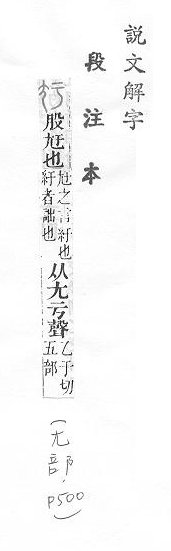 說文解字
段注本
股尪也
尪之言紆也
紆者詘也
从尢亏聲
乙于切
五部
(尢部, P500)